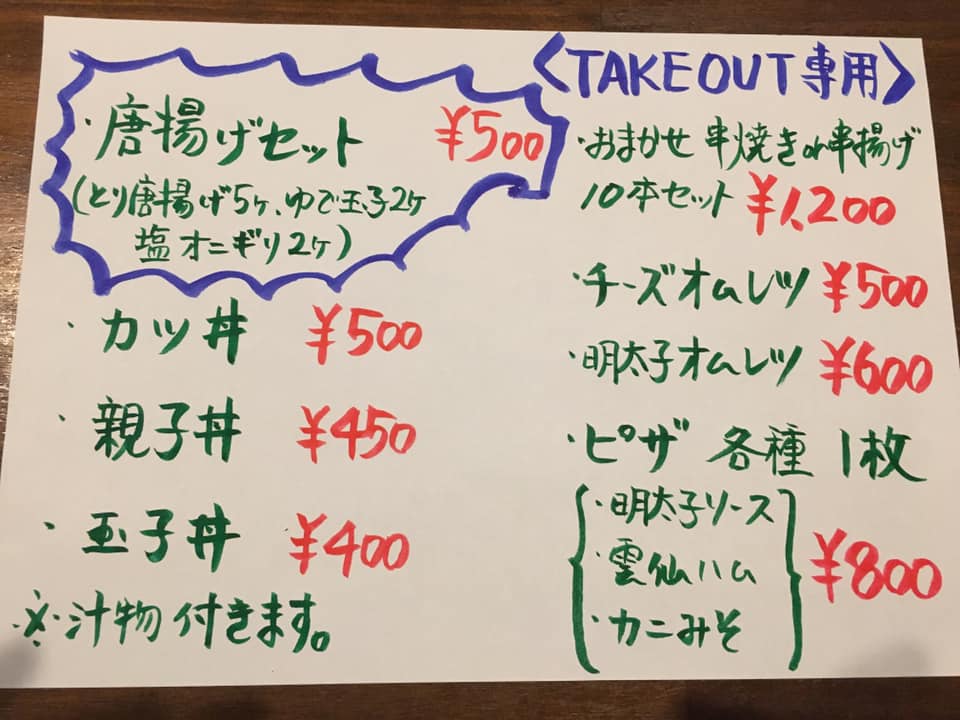 〈TAKEOUT専用〉
・唐揚げセット ¥500
(とり唐揚げ5ヶ、ゆで玉子2ヶ
塩オニギリ2ヶ)
・カツ丼 ¥500
・親子丼 ¥450
・玉子丼 ¥400
※汁物付きます。
・おまかせ 串焼きor串揚げ
10本セット ¥1,200
・チーズオムレツ ¥500
・明太子オムレツ ¥600
・ピザ 各種 1枚
・明太子ソース
・雲仙ハム
・カニみそ
¥800